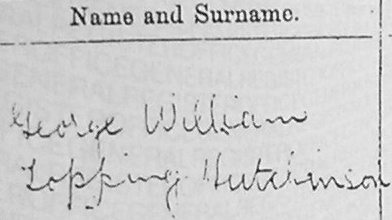 Name and Surname.
George William
Topping Hutchinson